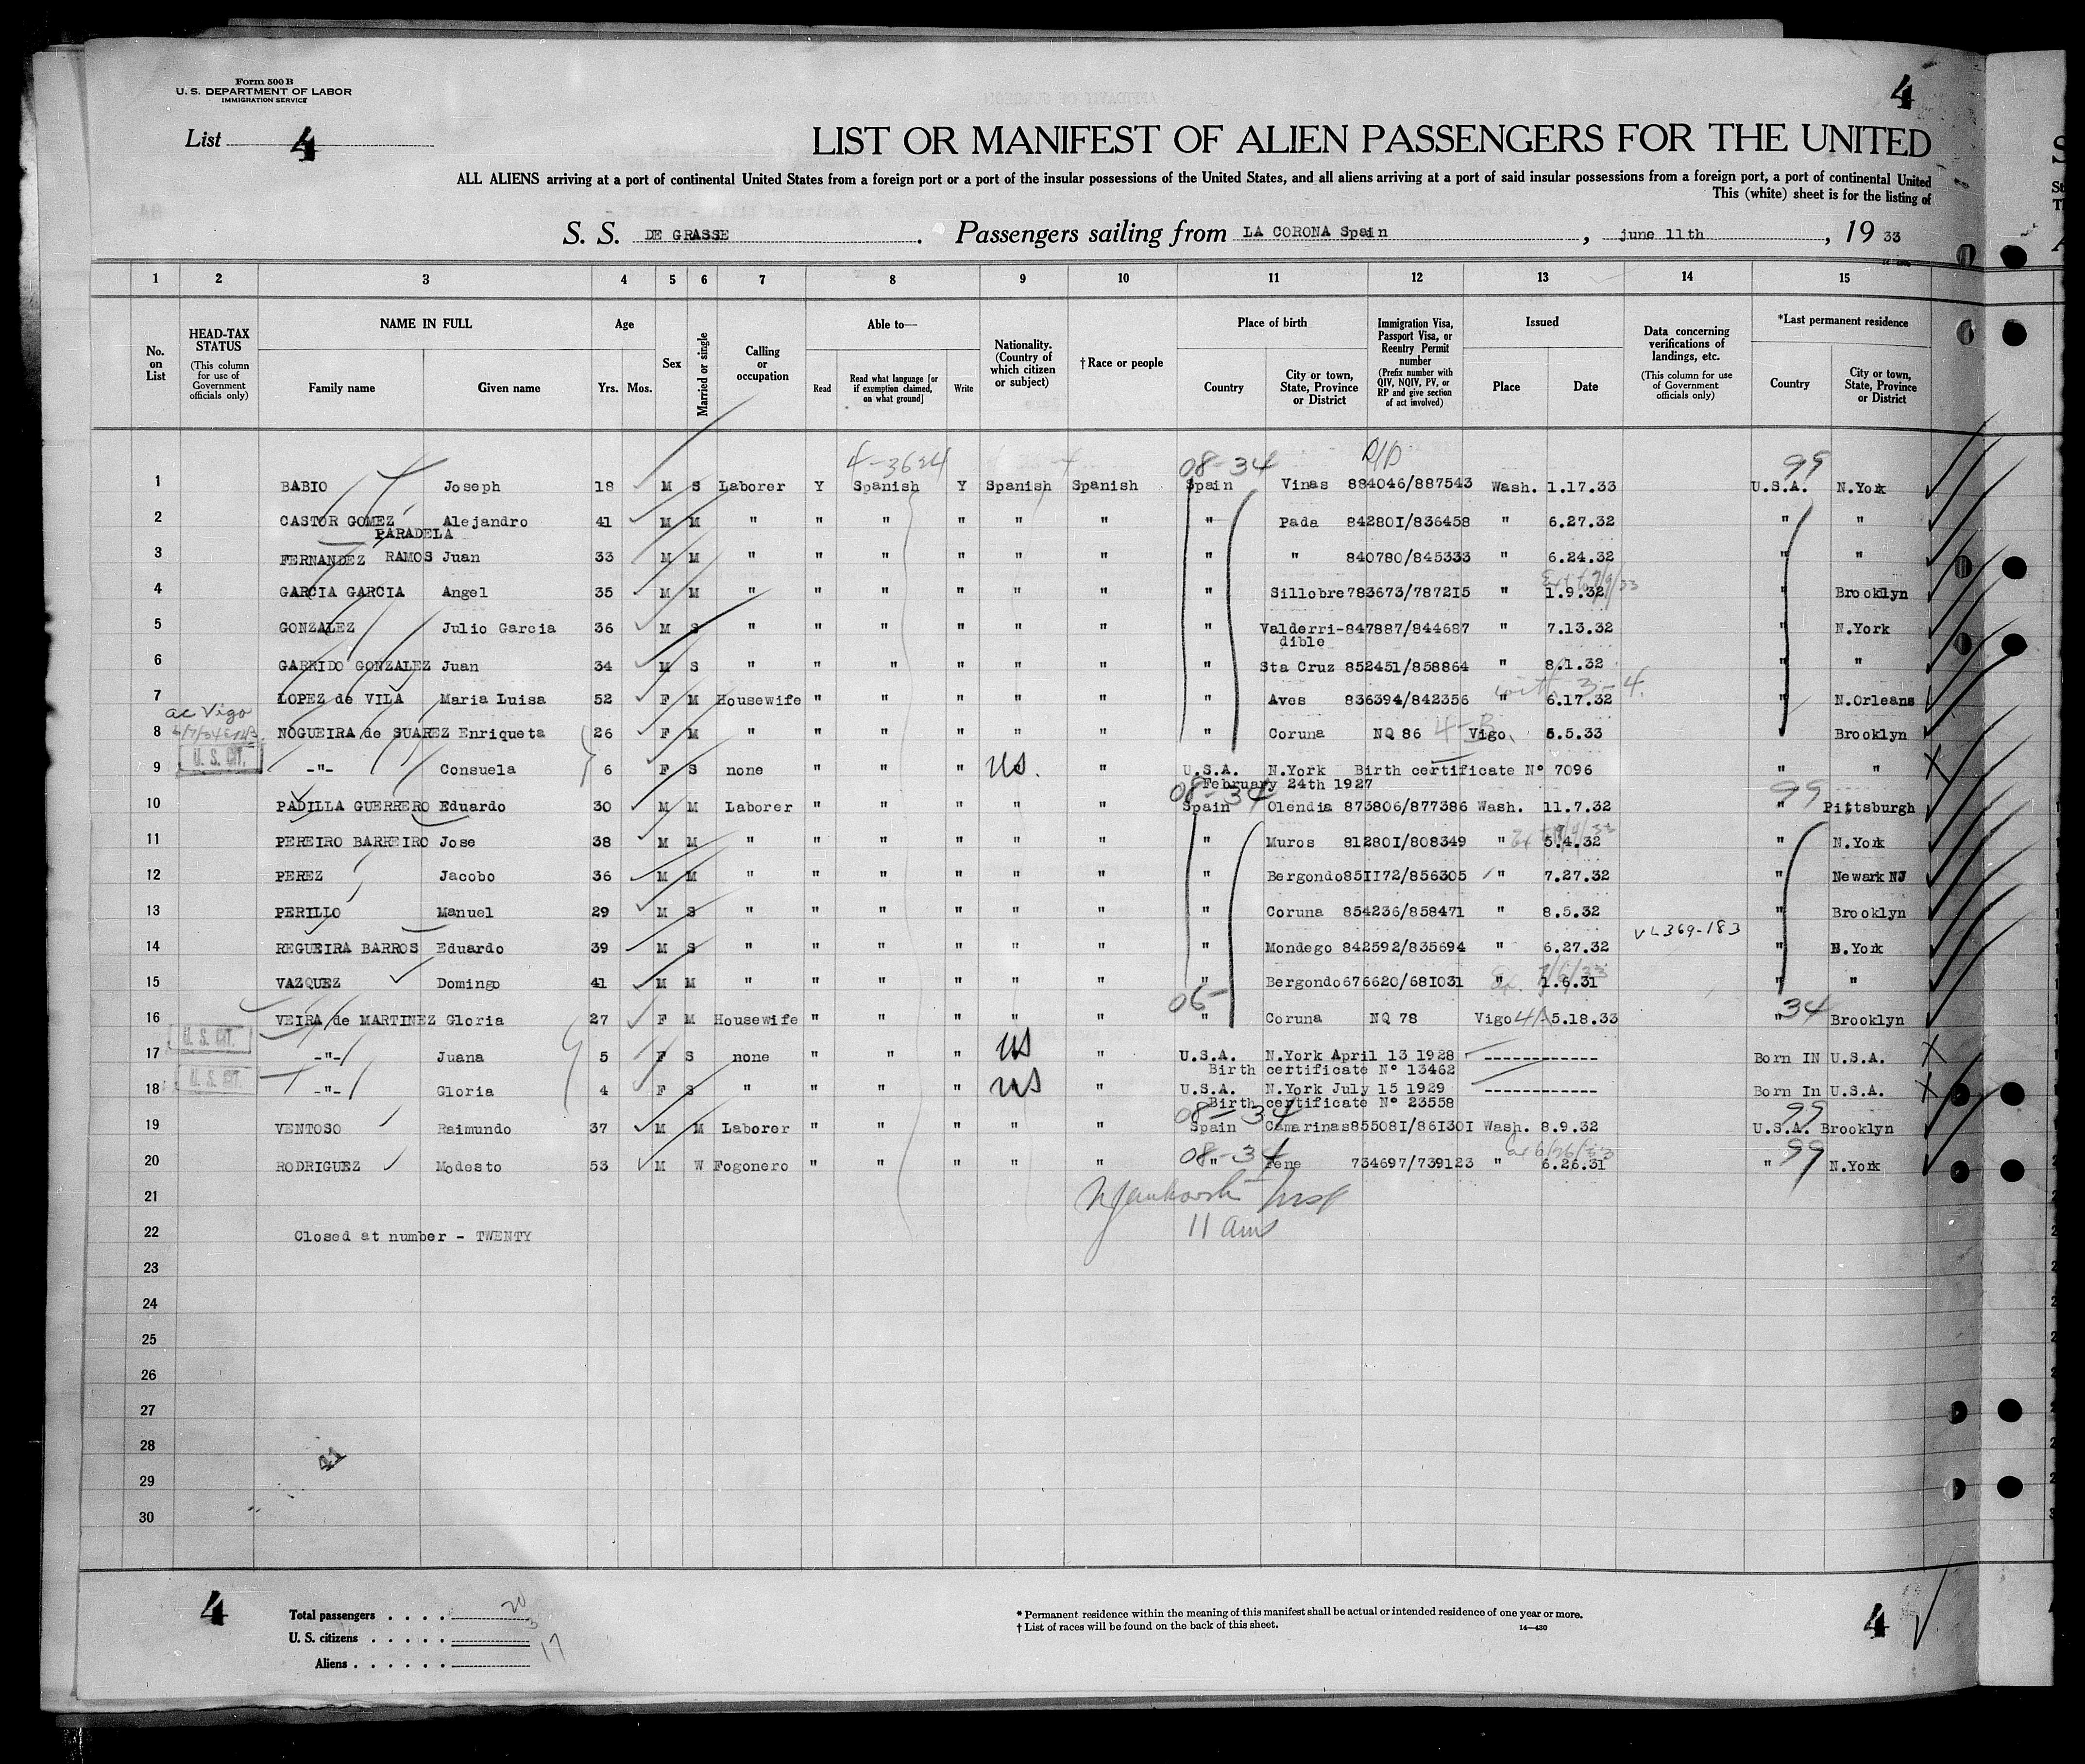 Form 500 B
U. S. DEPARTMENT OF LABOR
IMMIGRATION SERVICE
4
List 4
LIST OR MANIFEST OF ALIEN PASSENGERS FOR THE UNITED
ALL ALIENS arriving at a port of continental United States from a foreign port or a port of the insular possessions of the United States, and all aliens arriving at a port of said insular possessions from a foreign port, a port of continental United
This (white) sheet is for the listing of
S. S. DE GRASSE . Passengers sailing from LA CORONA Spain , june 11th , 19 33
1 2 3 4 5 6 7 8 9 10 11 12 13 14 15
No. on List
HEAD-TAX STATUS (This column for use of Government officials only)
NAME IN FULL Family name Given name
Age Yrs. Mos.
Sex
Married or single
Calling or occupation
Able to— Read Read what language [or if exemption claimed, on what ground] Write
Nationality. (Country of which citizen or subject)
† Race or people
Place of birth Country City or town, State, Province or District
Immigration Visa, Passport Visa, or Reentry Permit number (Prefix number with QIV, NQIV, PV, or RP and give section of act involved)
Issued Place Date
Data concerning verifications of landings, etc. (This column for use of Government officials only)
*Last permanent residence Country City or town, State, Province or District
4-3624 08-34 99
1 BABIO Joseph 18 M S Laborer Y Spanish Y Spanish Spanish Spain Vinas 884046/887543 Wash. 1.17.33 U.S.A. N.York
2 CASTOR GOMEZ Alejandro 41 M M " " " " " " " Pada 842801/836458 " 6.27.32 " "
PARADELA
3 FERNANDEZ RAMOS Juan 33 M M " " " " " " " " 840780/845333 " 6.24.32 " "
4 GARCIA GARCIA Angel 35 M M " " " " " " " Sillobre 783673/787215 " 1.9.32 " Brooklyn
5 GONZALEZ Julio Garcia 36 M S " " " " " " " Valderri- 847887/844687 " 7.13.32 " N.York
dible
6 GARRIDO GONZALEZ Juan 34 M S " " " " " " " Sta Cruz 852451/858864 " 8.1.32 " "
with 3-4.
7 LOPEZ de VILA Maria Luisa 52 F M Housewife " " " " " " Aves 836394/842356 " 6.17.32 " N.Orleans
ac Vigo
8 NOGUEIRA de SUAREZ Enriqueta 26 F M " " " " " " " Coruna NQ 86 4-B Vigo 5.5.33 " Brooklyn
U. S. CIT.
9 -"- Consuela 6 F S none " " " US. " U.S.A. N.York Birth certificate Nº 7096 " "
February 24th 1927
08-34 99
10 PADILLA GUERRERO Eduardo 30 M M Laborer " " " " " Spain Olendia 873806/877386 Wash. 11.7.32 " Pittsburgh
11 PEREIRO BARREIRO Jose 38 M M " " " " " " " Muros 812801/808349 " 5.4.32 " N.York
12 PEREZ Jacobo 36 M M " " " " " " " Bergondo 851172/856305 " 7.27.32 " Newark NJ
13 PERILLO Manuel 29 M S " " " " " " " Coruna 854236/858471 " 8.5.32 " Brooklyn
VL369-183
14 REGUEIRA BARROS Eduardo 39 M S " " " " " " " Mondego 842592/835694 " 6.27.32 " N.York
15 VAZQUEZ Domingo 41 M M " " " " " " " Bergondo 676620/681031 " 1.6.31 " "
06- 34
16 VEIRA de MARTINEZ Gloria 27 F M Housewife " " " " " " Coruna NQ 78 Vigo 5.18.33 " Brooklyn
U. S. CIT.
17 -"- Juana 5 F S none " " " US " U.S.A. N.York April 13 1928 ------------ Born IN U.S.A.
Birth certificate Nº 13462
U. S. CIT.
18 -"- Gloria 4 F S " " " " US " U.S.A. N.York July 15 1929 ------------ Born In U.S.A.
Birth certificate Nº 23558
08-34 99
19 VENTOSO Raimundo 37 M M Laborer " " " " " Spain Camarinas 855081/861301 Wash. 8.9.32 U.S.A. Brooklyn
08-34 99
20 RODRIGUEZ Modesto 53 M W Fogonero " " " " " " Fene 734697/739123 " 6.26.31 " N.York
21
11 am
22 Closed at number - TWENTY
23
24
25
26
27
28
29
30
4
Total passengers . . . . 20
U. S. citizens . . . . . 3
Aliens . . . . . . 17
* Permanent residence within the meaning of this manifest shall be actual or intended residence of one year or more.
† List of races will be found on the back of this sheet.
14—430
4